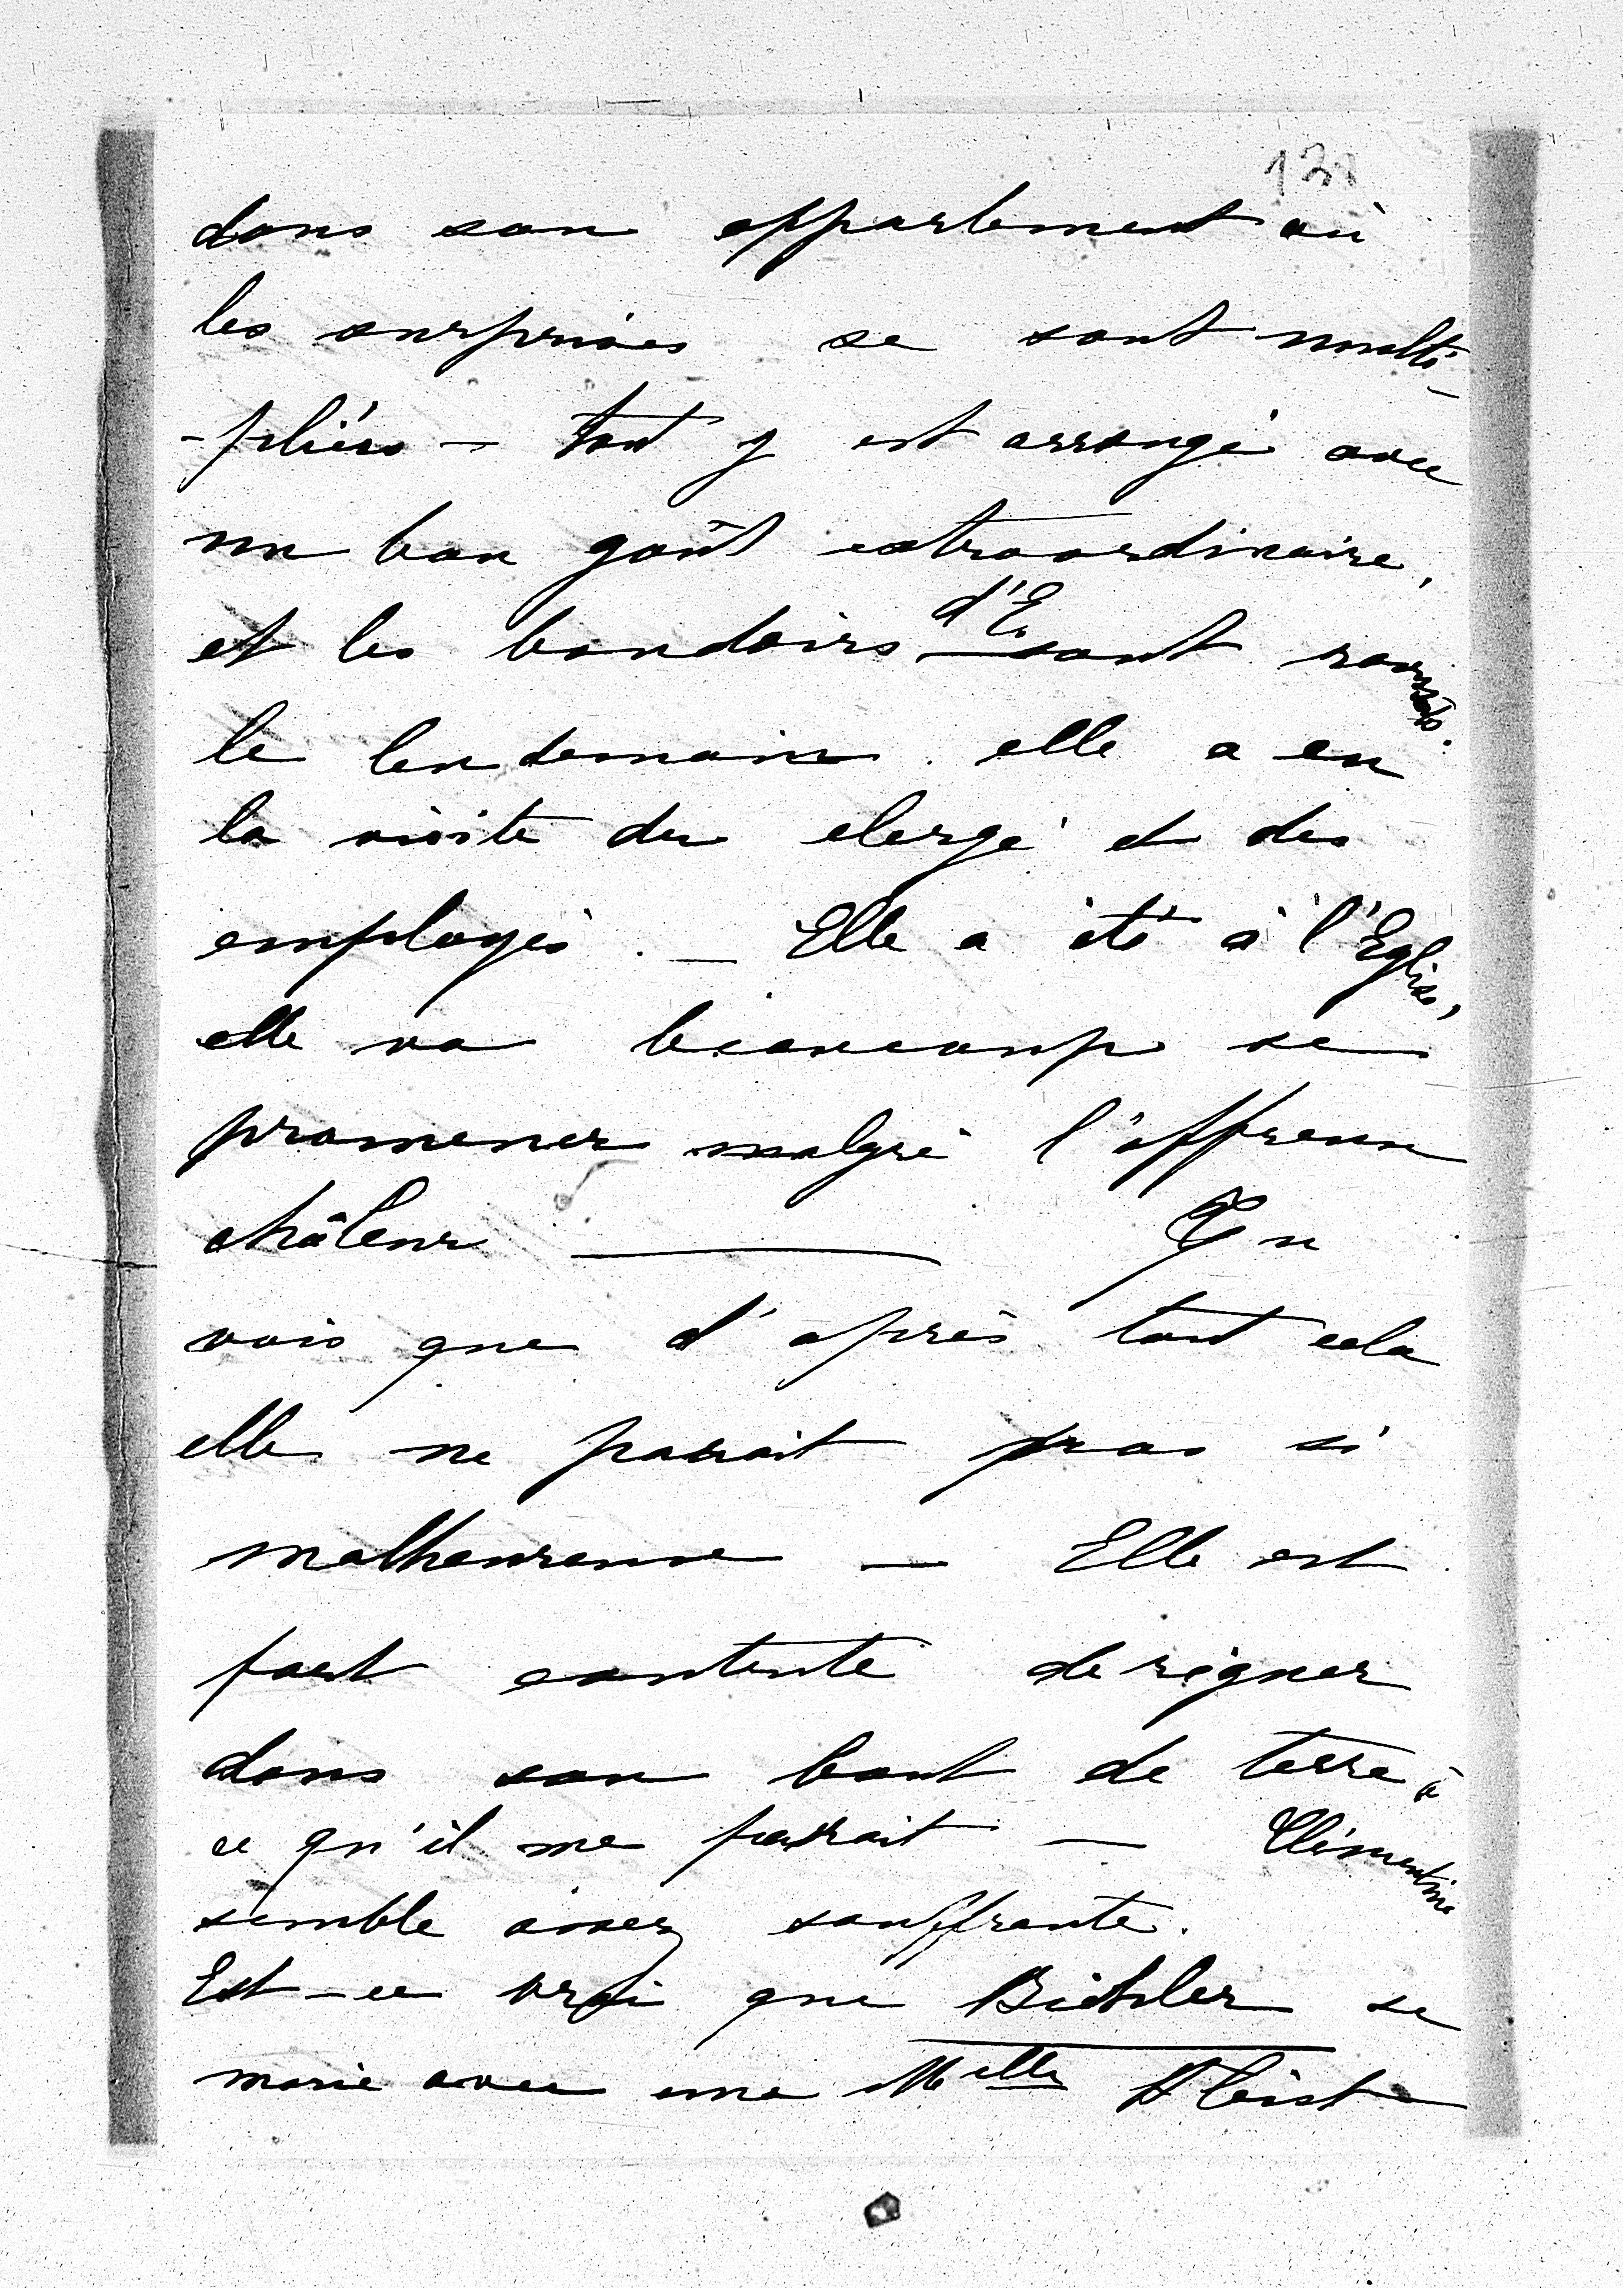 dans son appartement où
les surprises se sont multi-
-pliées - tout y est arrangé avec
un bon goût extraordinaire,
et les boudoirs d'E. sont
le lendemain. elle a eu
la visite du clergé et des
employés. _ Elle a été à l'Eglise,
elle va beaucoup se
promener malgré l'affreuse
châleur ____ Tu
vois que d'après tout cela
elle ne parait pas si
malheureuse — Elle est
fort contente de régner
dans son bout de terre à
ce qu'il me parait — Clémentine
semble assez souffrante.
Est-ce vrai que se
marie avec une Melle Kleist